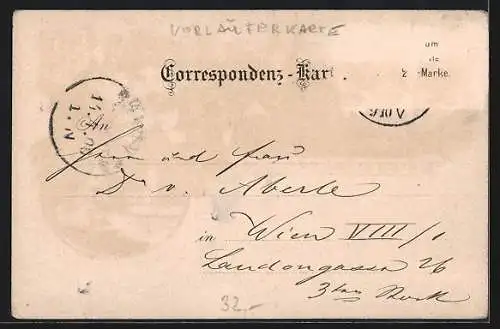 VORLÄUFERKARTE
um
Correspondenz-Kart
-Marke.
An
Herrn und Frau
Dr v. Aberle
in Wien VIII/1
Laudongasse 26
3ten Stock
32.-